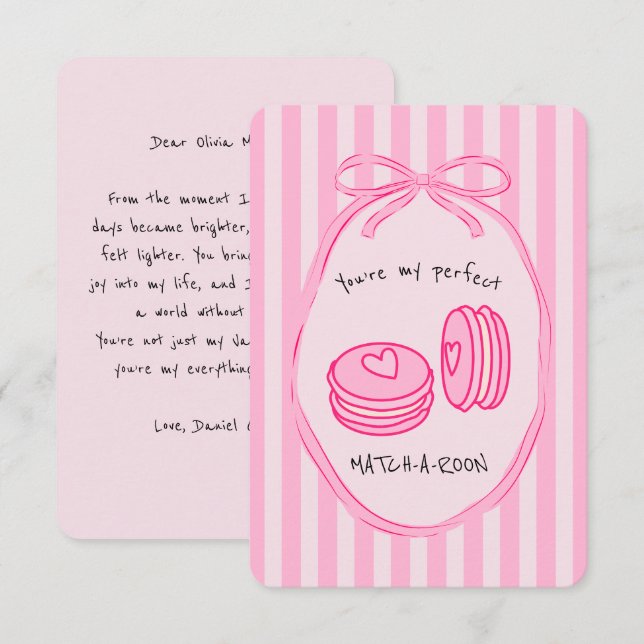 Dear Olivia M
From the moment I
days became brighter,
felt lighter. You brin
joy into my life, and I
a world without
You're not just my Va
you're my everything
Love, Daniel
You're my perfect
MATCH-A-ROON